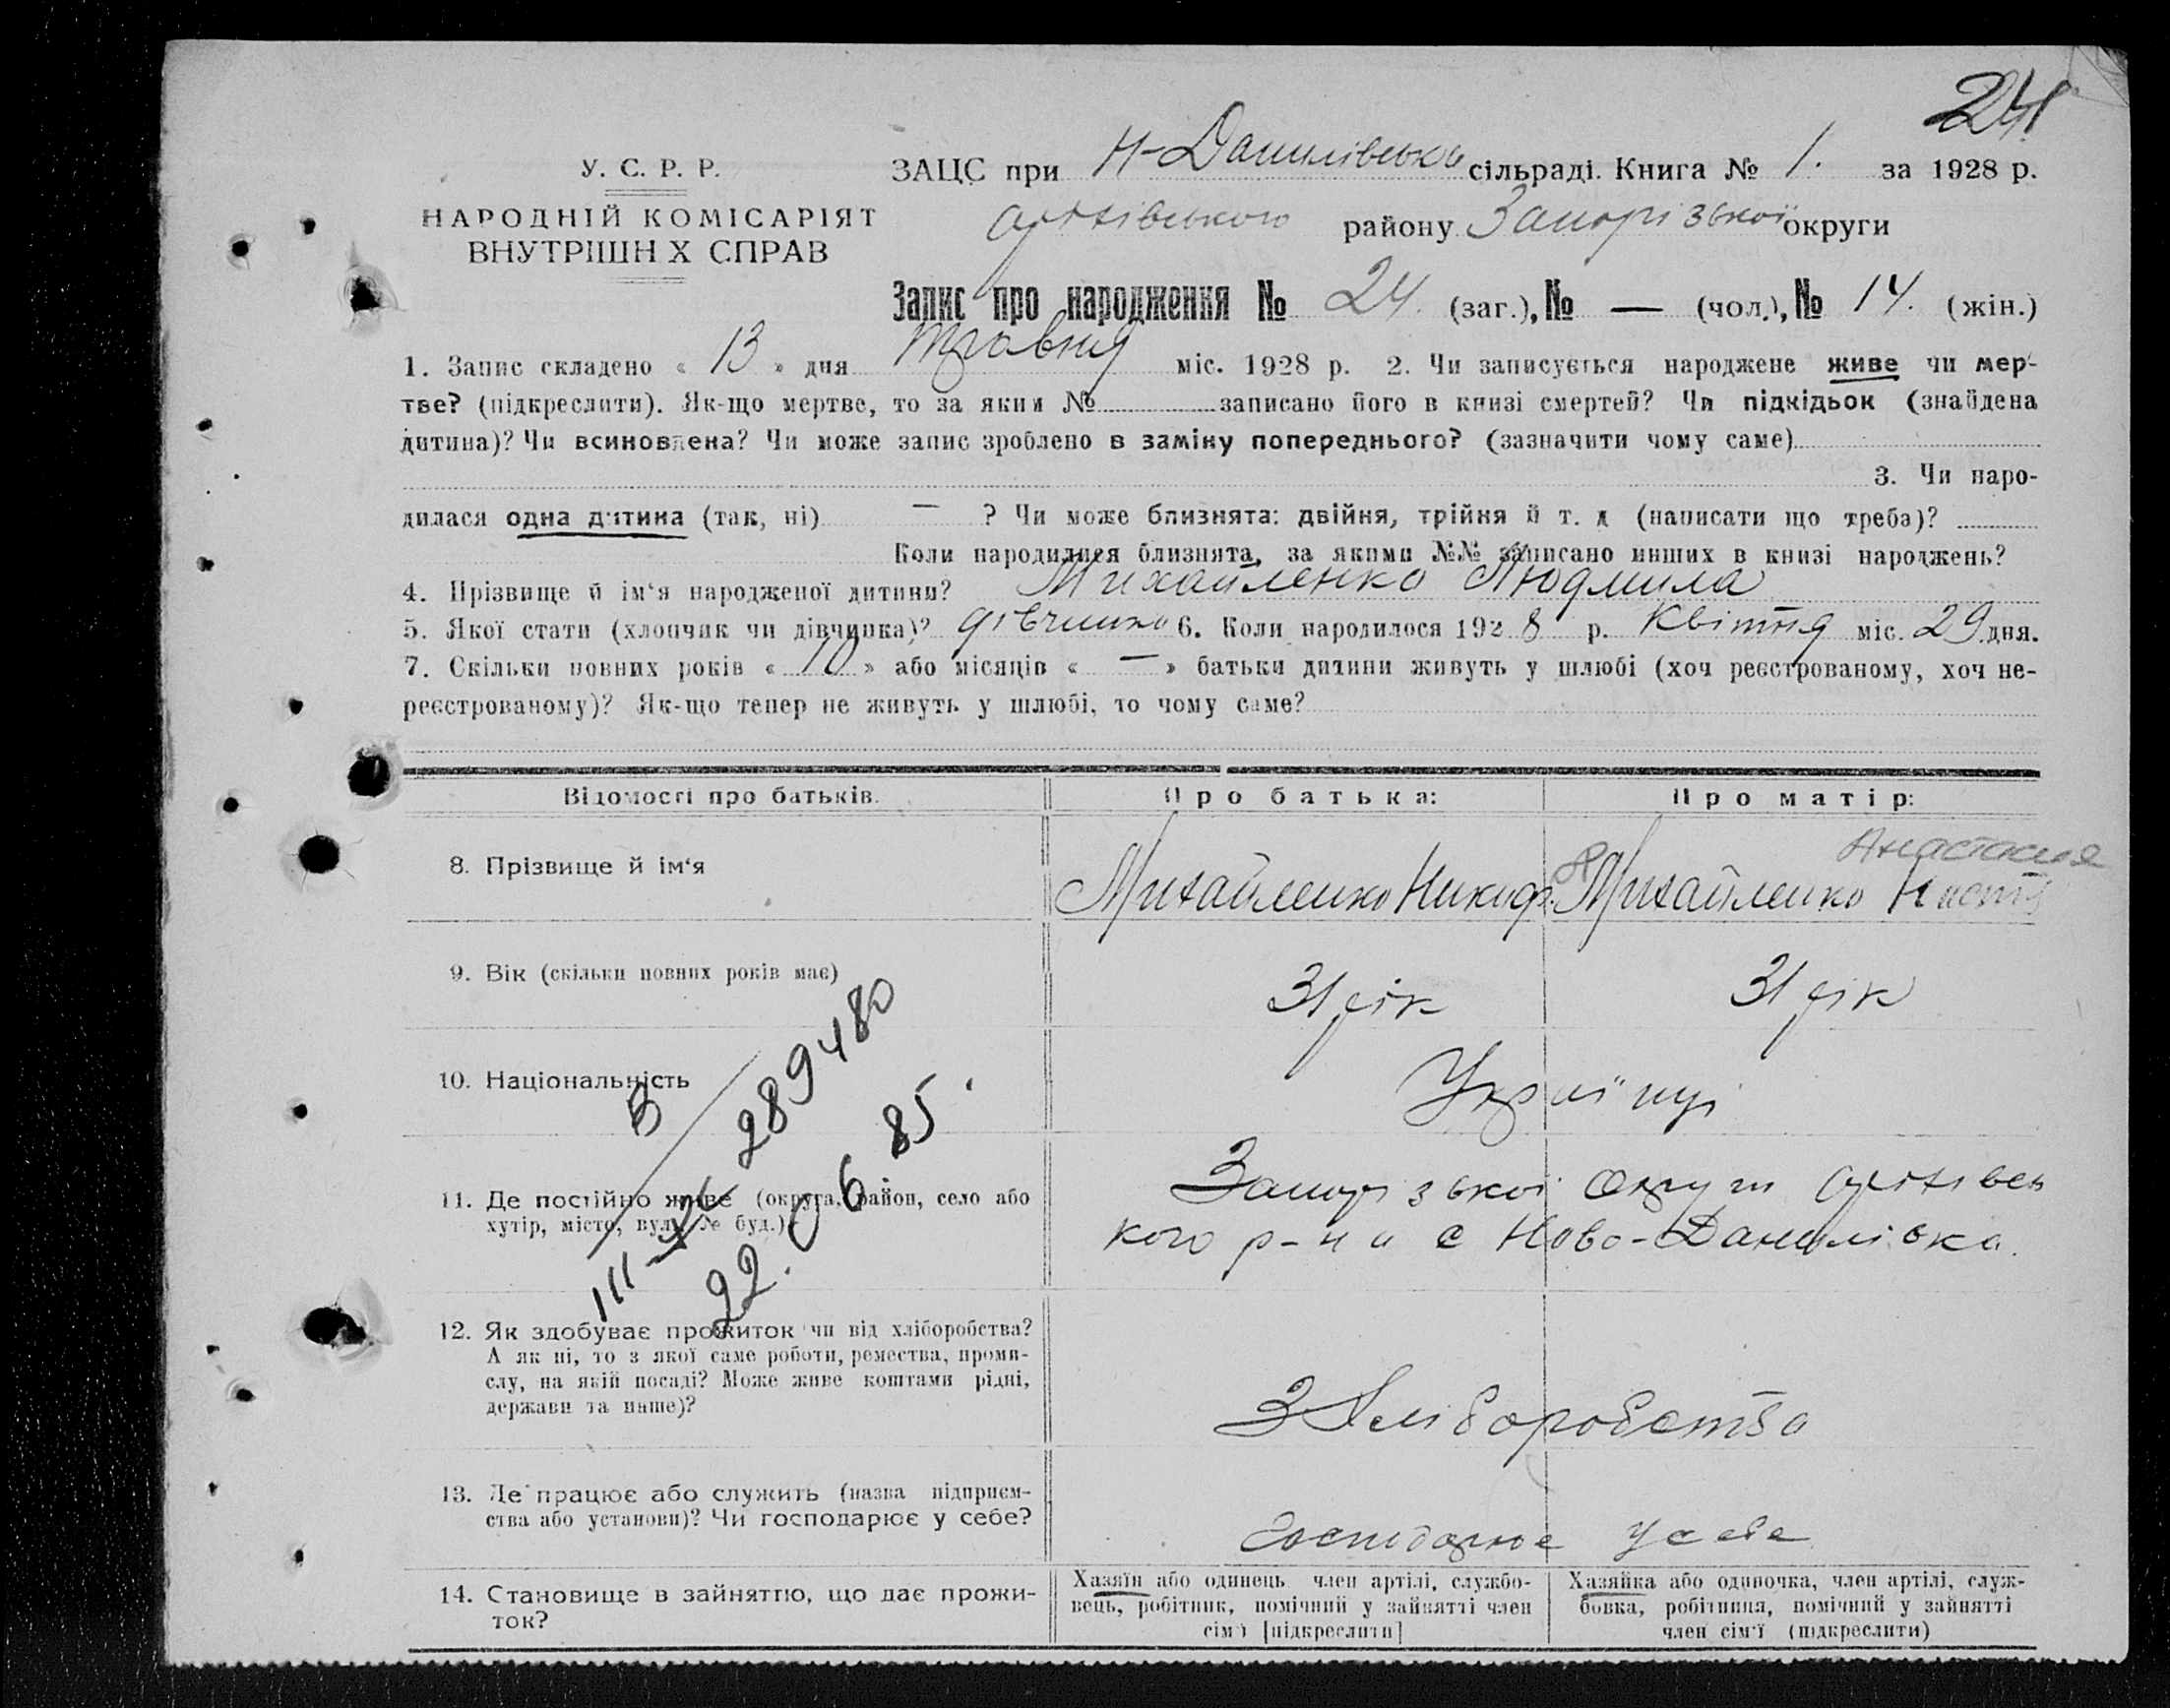 24
У. С. Р. Р.
НАРОДНІЙ КОМІСАРІЯТ
ВНУТРІШН Х СПРАВ
ЗАЦС при Н-Данилівській сільраді. Книга № 1. за 1928 р.
Оріхівського району Запорізької округи
Запис про народження № 24. (заг.), № — (чол.), № 14. (жін.)
1. Запис складено « 13 » дня травня міс. 1928 р. 2. Чи записується народжене живе чи мер-
тве? (підкреслити). Як-що мертве, то за яким № записано його в книзі смертей? Чи підкідьок (знайдена
дитина)? Чи всиновлена? Чи може запис зроблено в заміну попереднього? (зазначити чому саме)
3. Чи наро-
дилася одна дитина (так, ні) — ? Чи може близнята: двійня, трійня й т. д (написати що треба)?
Коли народилися близнята, за якими №№ записано инших в книзі народжень?
4. Прізвище й ім'я народженої дитини? Михайленко Людмила
5. Якої стати (хлопчик чи дівчинка)? дівчинка 6. Коли народилося 1928 р. Квітня міс. 29 дня.
7. Скільки повних років « 10 » або місяців « — » батьки дитини живуть у шлюбі (хоч реєстрованому, хоч не-
реєстрованому)? Як-що тепер не живуть у шлюбі, то чому саме?
Відомості про батьків. Про батька: Про матір:
Анастасия
8. Прізвище й ім'я Михайленко Никиф. Михайленко Настя
9. Вік (скільки повних років має) 31 рік 31 рік
10. Національність Українці
11. Де постійно живе (округа, район, село або Запорізької Округи Оріхівсь
хутір, місто, вул., № буд.) кого р-на с Ново-Данилівка.
289480
22.06.85.
12. Як здобуває прожиток чи від хліборобства?
А як ні, то з якої саме роботи, ремества, проми-
слу, на якій посаді? Може живе коштами рідні, З Хліборобства
держави та инше)?
13. Де працює або служить (назва підприєм-
ства або установи)? Чи господарює у себе? Господарює у себе
14. Становище в зайняттю, що дає прожи-
ток?
Хазяїн або одинець член артілі, службо-
вець, робітник, помічний у зайнятті член
сім'ї [підкреслити]
Хазяйка або одиночка, член артілі, служ-
бовка, робітниця, помічний у зайнятті
член сім'ї (підкреслити)